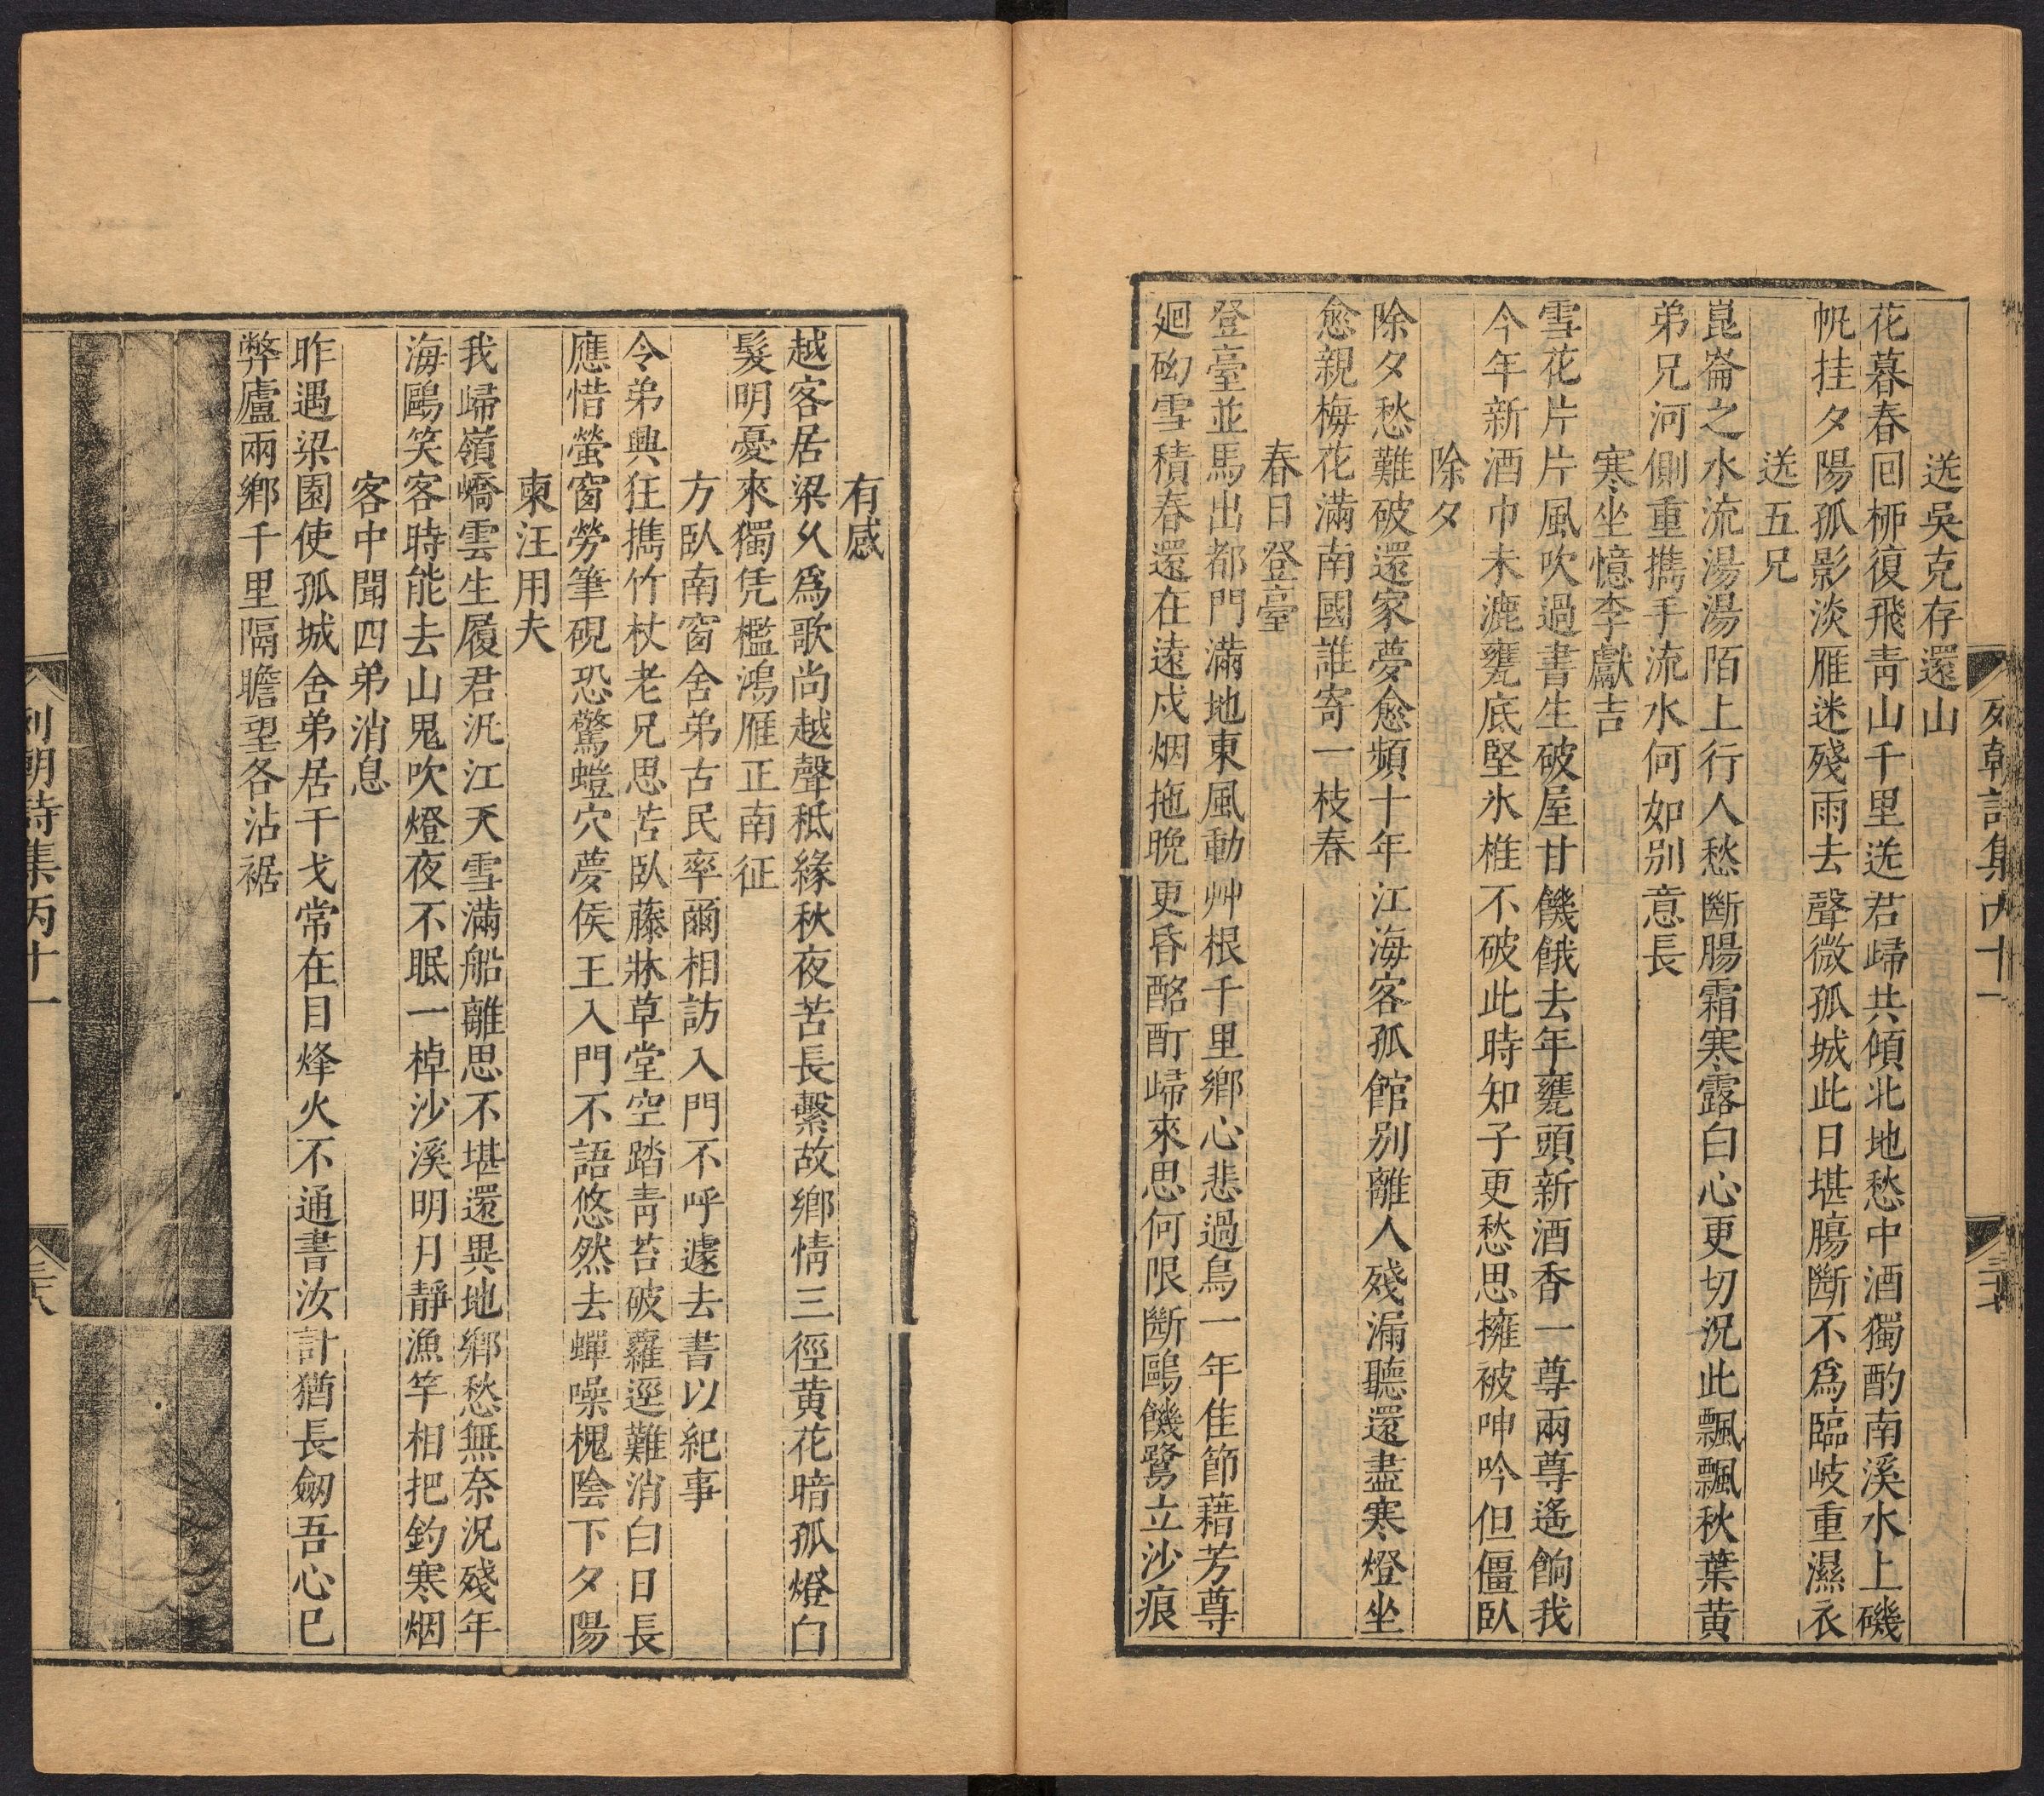 列朝詩集丙十一
三十七
送吳克存還山
花暮春回桺復飛青山千里送君歸共傾北地愁中酒獨酌南溪水上磯
帆挂夕陽孤影淡雁迷殘雨去聲微孤城此日堪腸斷不爲臨岐重濕衣
送五兄
崑崙之水流湯湯陌上行人愁斷腸霜寒露白心更切況此飄飄秋葉黄
弟兄河側重攜手流水何如别意長
寒坐憶李獻吉
雪花片片風吹過書生破屋甘饑餓去年甕頭新酒香一尊兩尊遙餉我
今年新酒巾未漉甕底堅氷椎不破此時知子更愁思擁被呻吟但僵臥
除夕
除夕愁難破還家夢愈頻十年江海客孤館别離人殘漏聽還盡寒燈坐
愈親梅花滿南國誰寄一枝春
春日登臺
登臺並馬出都門滿地東風動艸根千里鄉心悲過鳥一年佳節藉芳尊
廻砌雪積春還在遠戍烟拖晚更昏酩酊歸來思何限斷鷗饑鷺立沙痕
有感
越客居梁久爲歌尚越聲秪緣秋夜苦長繫故鄉情三徑黄花暗孤燈白
髮明憂來獨凭檻鴻雁正南征
方臥南窗舍弟古民率爾相訪入門不呼遽去書以紀事
令弟興狂攜竹杖老兄思苦臥藤牀草堂空踏靑苔破蘿逕難消白日長
應惜螢窗勞筆硯恐驚螘穴夢侯王入門不語悠然去蟬噪槐陰下夕陽
柬汪用夫
我歸嶺嶠雲生履君汎江天雪滿船離思不堪還異地鄉愁無奈況殘年
海鷗笑客時能去山鬼吹燈夜不眠一棹沙溪明月靜漁竿相把釣寒烟
客中聞四弟消息
昨遇梁園使孤城舍弟居干戈常在目烽火不通書汝計猶長劒吾心巳
弊廬兩鄉千里隔瞻望各沾裾
列朝詩集丙十一
三十八